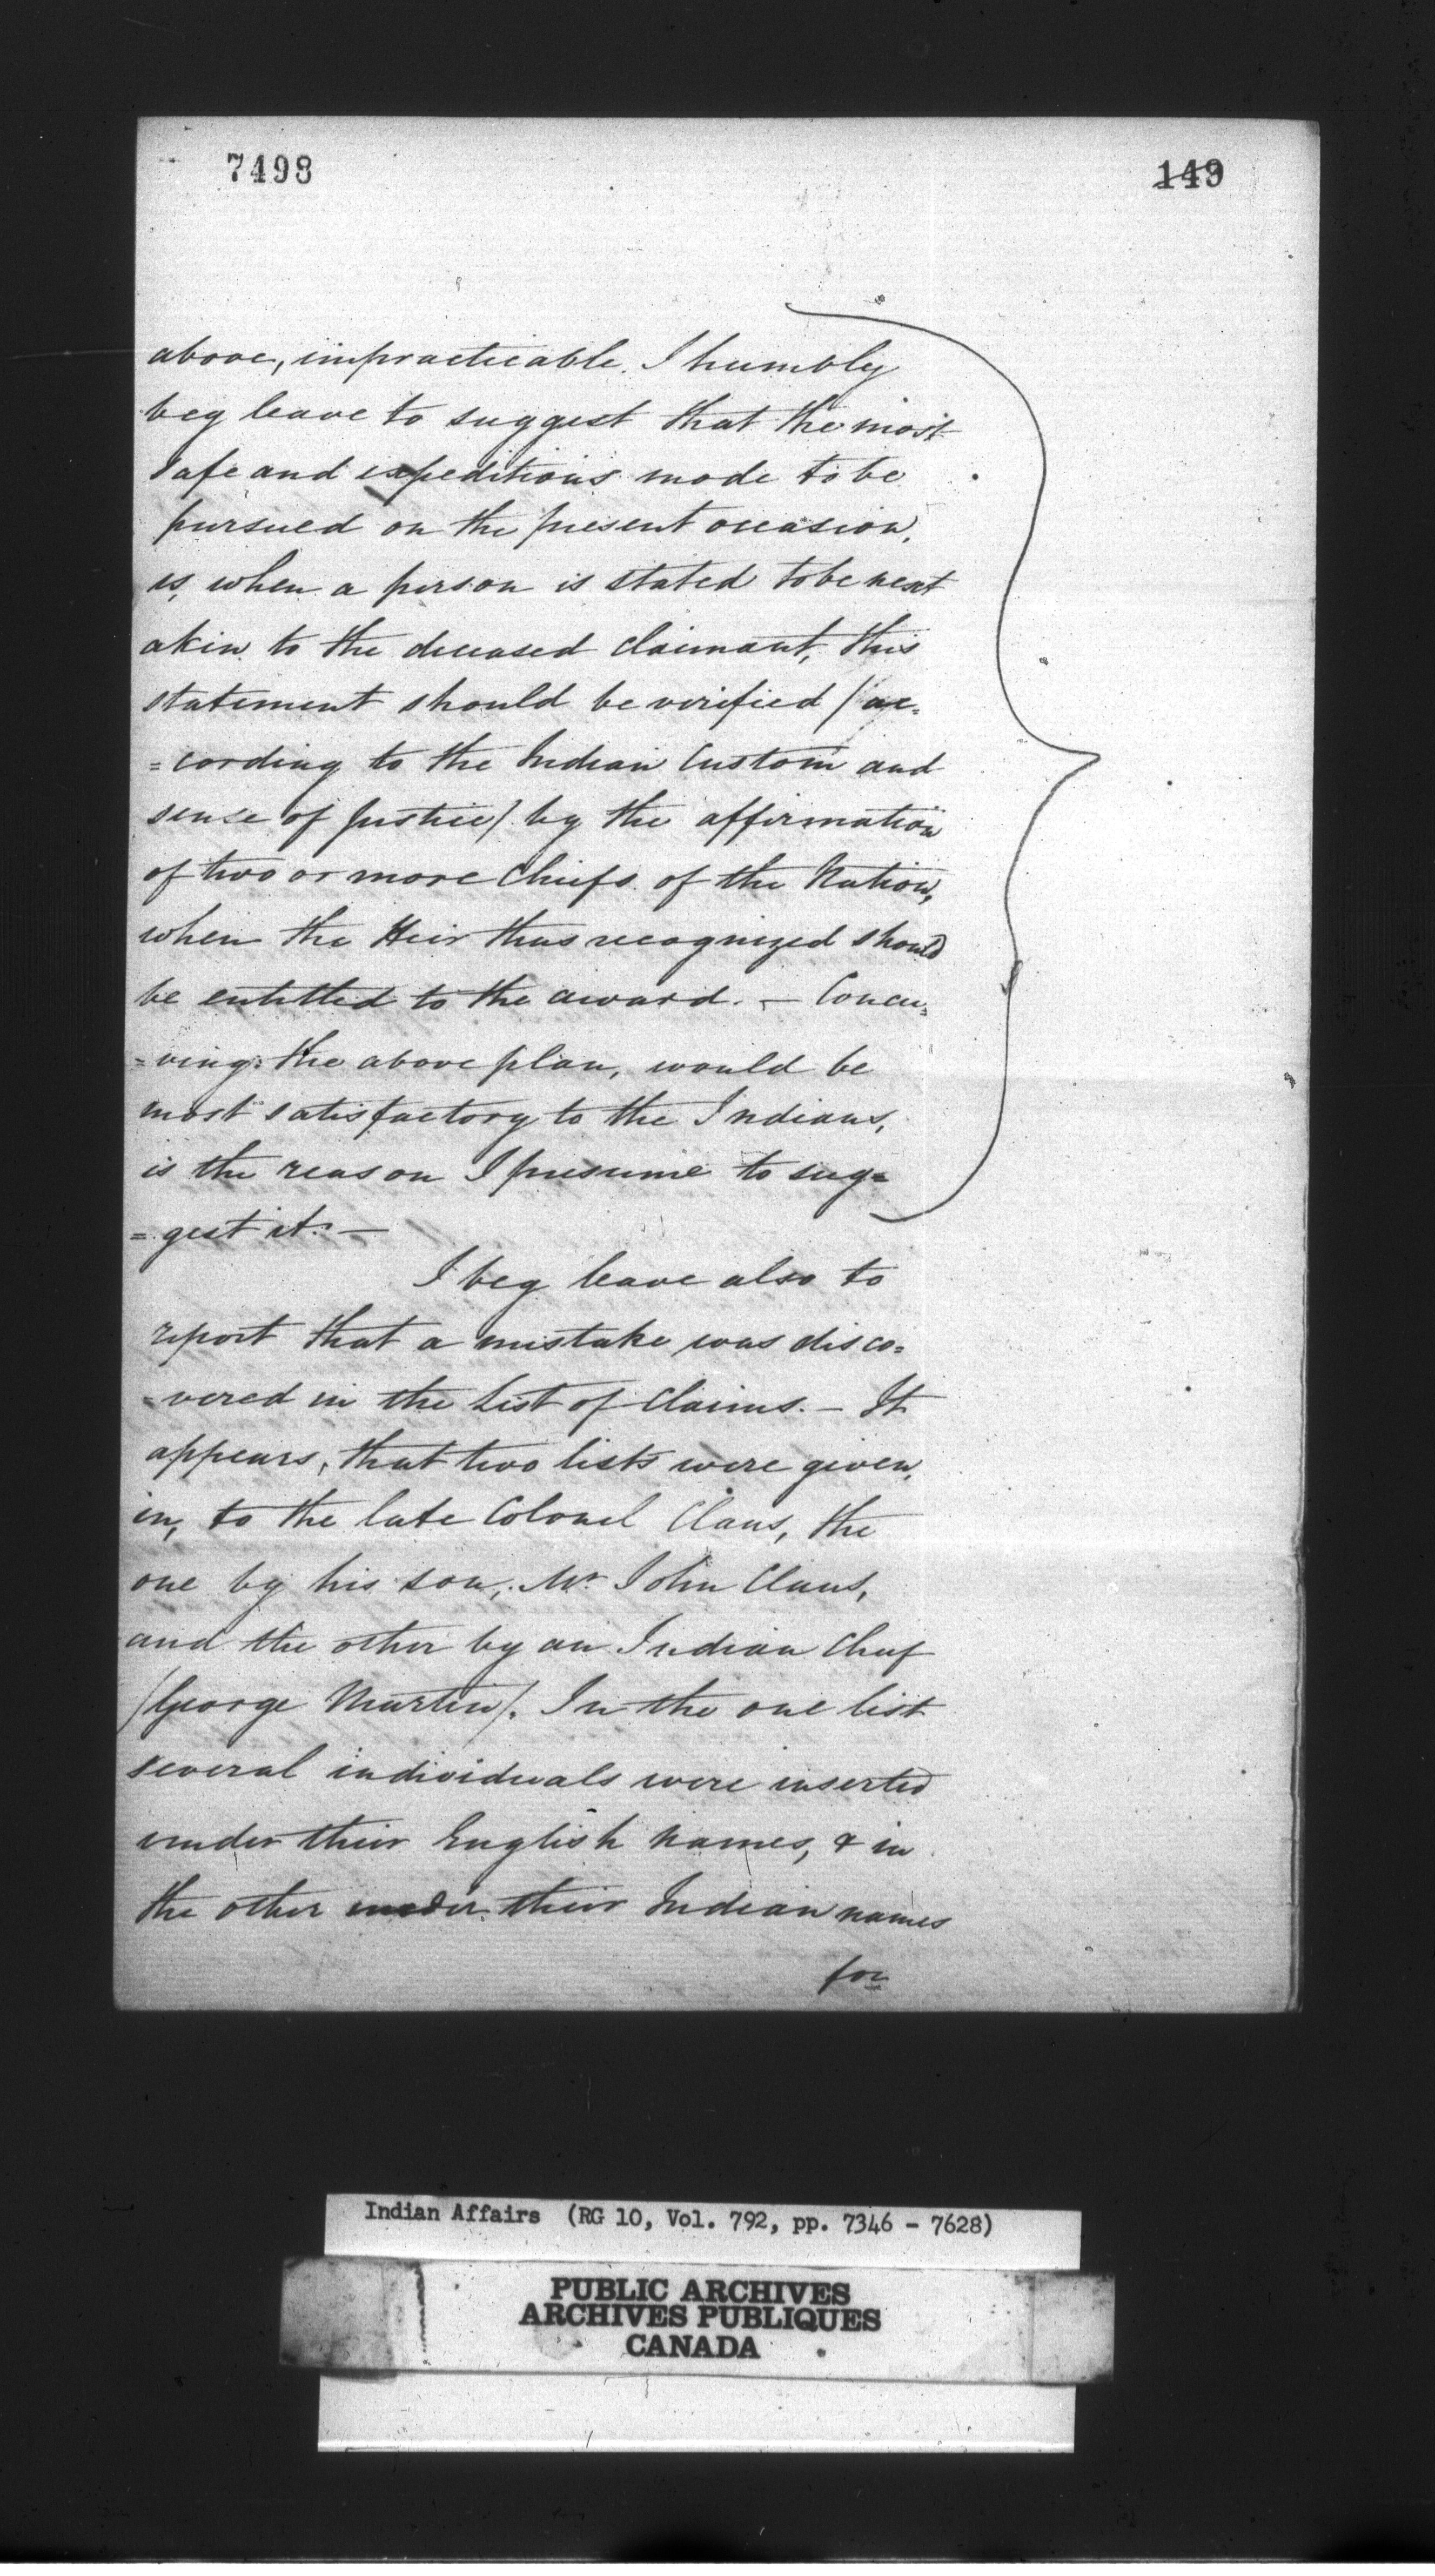 7498
149
above, impracticable. I humbly
beg leave to suggest that the most
safe and expeditious mode to be
pursued on the present occasion,
is, when a person is stated to be next
akin to the deceased claimant, this
statement should be verified /ac=
=cording to the Indian Custom and
sense of Justice/ by the affirmation
of two or more Chiefs of the Nation,
when the Heir thus recognized should
be entitled to the award. – Concei=
=ving the above plan, would be
most satisfactory to the Indians,
is the reason I presume to sug=
=gest it. –
I beg leave also to
report that a mistake was disco=
=vered in the List of Claims. – It
appears, that two lists were given,
in, to the late Colonel Claus, the
one by his son, Mr John Claus,
and the other by an Indian Chief
/George Martin/. In the one list
several individuals were inserted
under their English names, & in
the other under their Indian names
for
Indian Affairs (RG 10, Vol. 792, pp. 7346 - 7628)
PUBLIC ARCHIVES
ARCHIVES PUBLIQUES
CANADA